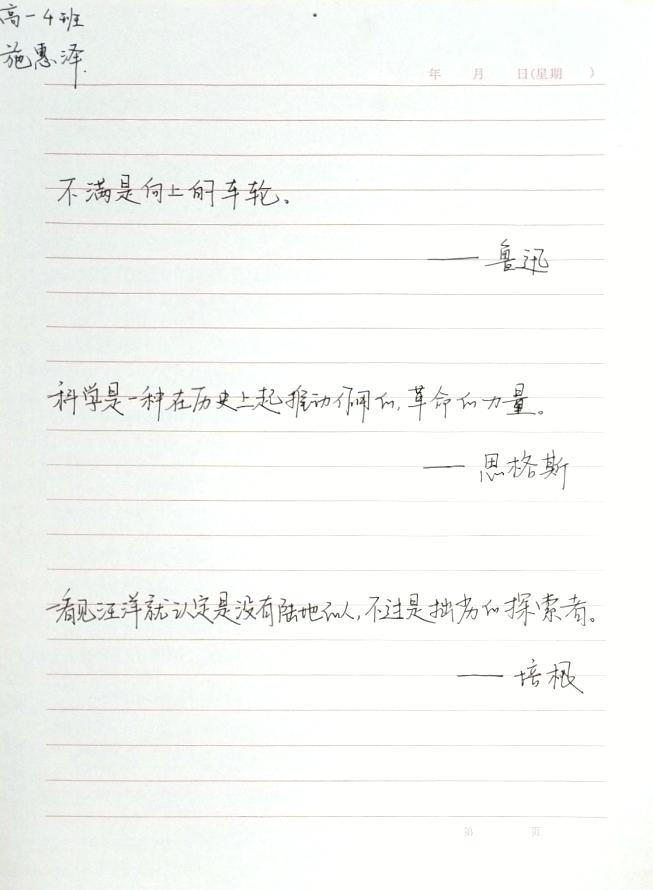 高一4班
施惠泽
年 月 日(星期 )
不满是向上的车轮。
—— 鲁迅
科学是一种在历史上起推动作用的,革命的力量。
—— 思格斯
看见汪洋就认定是没有陆地的人,不过是拙劣的探索者。
—— 培根
第 页